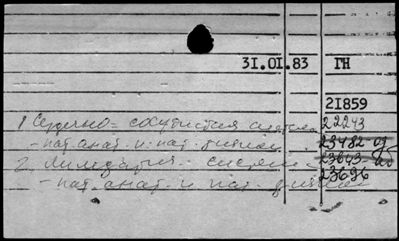 31.01.83 ГН
21859
1 Сердечно-сосудистая система 22243
- пат. анат. и пат. физиол 23482-од
2. Лимфатич. система 23643-
- пат. анат. и пат. физиол 23696